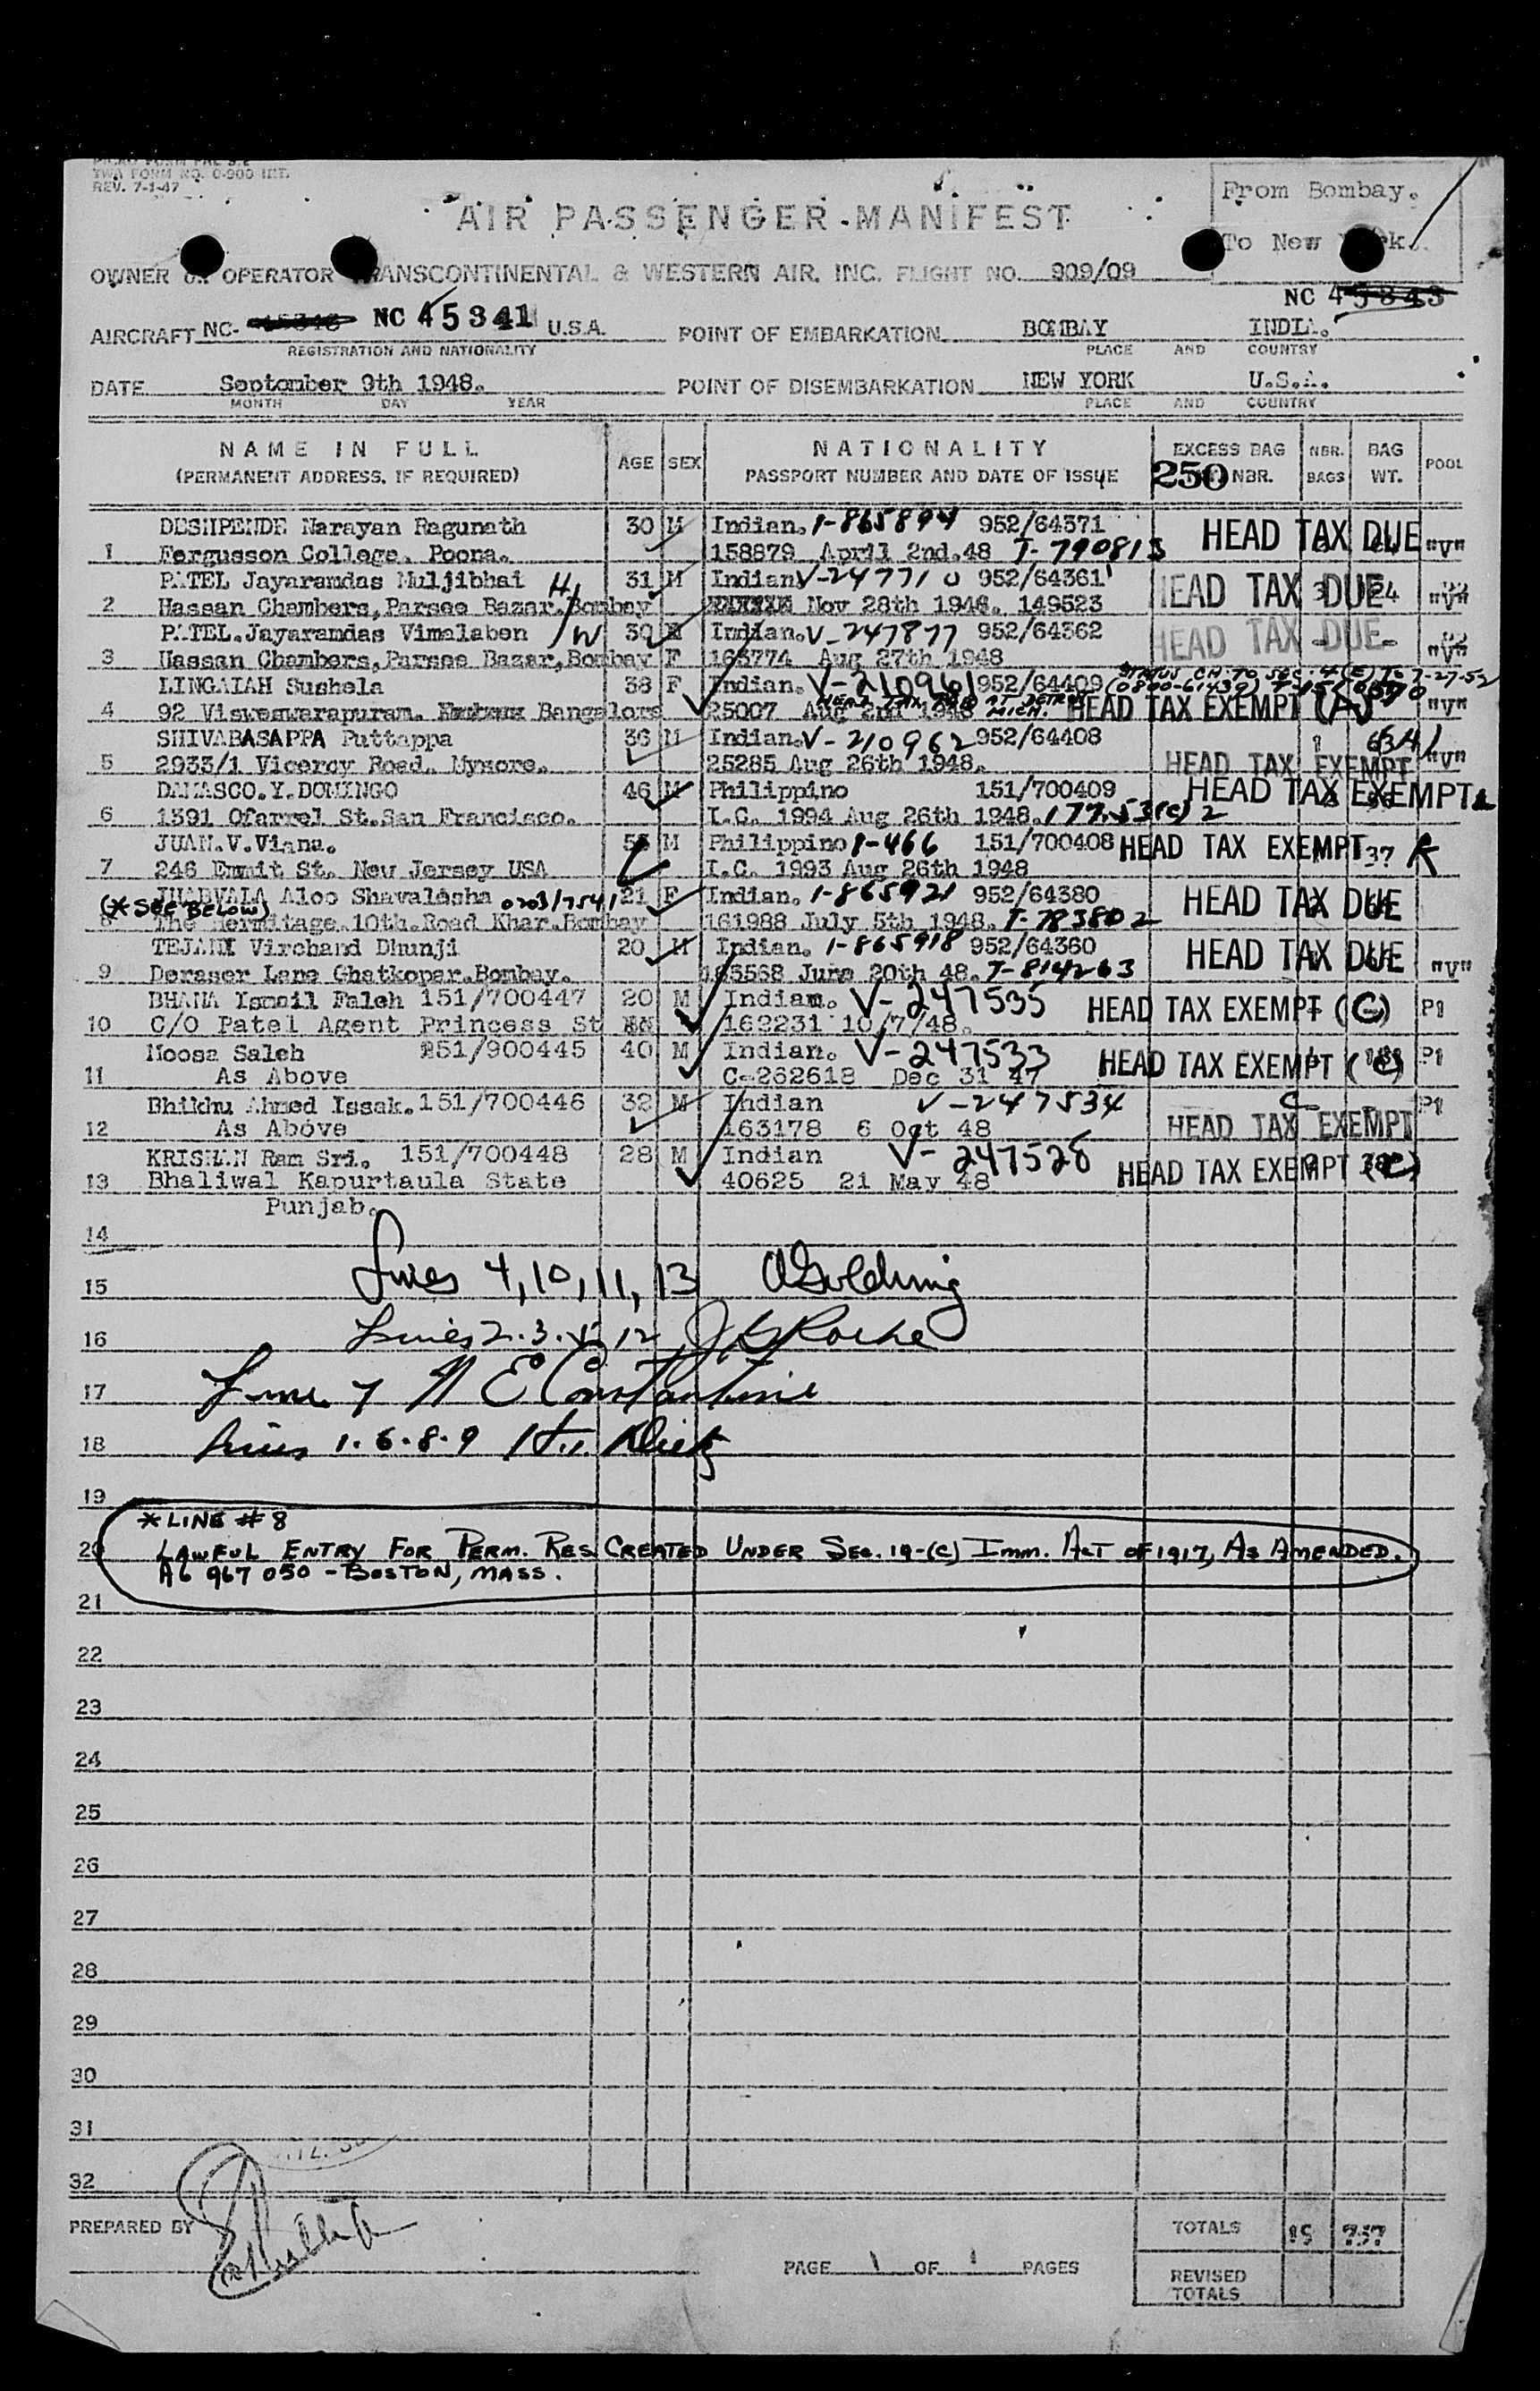 TWA FORM NO. 0-900 INT.
REV. 7-1-47
From Bombay.
To New
AIR PASSENGER MANIFEST
OWNER OR OPERATOR TRANSCONTINENTAL & WESTERN AIR, INC. FLIGHT NO. 909/09
NC 45343
AIRCRAFT NC- NC 45341 U.S.A. POINT OF EMBARKATION BOMBAY INDIA.
REGISTRATION AND NATIONALITY PLACE AND COUNTRY
DATE September 9th 1948. POINT OF DISEMBARKATION NEW YORK U.S.A.
MONTH DAY YEAR PLACE AND COUNTRY
NAME IN FULL AGE SEX NATIONALITY EXCESS BAG NBR. BAG POOL
(PERMANENT ADDRESS, IF REQUIRED) PASSPORT NUMBER AND DATE OF ISSUE 250 NBR. BAGS WT.
DESHPENDE Narayan Ragunath 30 M Indian. 1-865894 952/64371 HEAD TAX DUE
1 Fergusson College. Poona. 158879 April 2nd.48 T-790813 "V"
PATEL Jayaramdas Muljibhai H/ 31 M Indian V-247710 952/64361 HEAD TAX DUE 24
2 Hassan Chambers, Parsee Bazar. Bombay Nov 28th 1946. 149523 "V"
PATEL.Jayaramdas Vimalaben /W 30 Indian. V-247877 952/64362 HEAD TAX DUE
3 Hassan Chambers, Parsee Bazar, Bombay F 163774 Aug 27th 1948 "V"
STATUS CH. TO SEC. 4(E) 7-27-52
LINGAIAH Sushela 38 F Indian. V-210961 952/64409 (0800-61430)
HEAD TAX PAID AT DETROIT MICH.
4 92 Visweswarapuram. Bangalore 25007 Aug 2nd 1948 HEAD TAX EXEMPT (A) "V"
SHIVABASAPPA Puttappa 36 M Indian. V-210962 952/64408
5 2933/1 Viceroy Road. Mysore. 25285 Aug 26th 1948. HEAD TAX EXEMPT "V"
DAMASCO.Y.DOMINGO 46 M Philippino 151/700409 HEAD TAX EXEMPT
6 1391 Ofarrel St.San Francisco. I.C. 1994 Aug 26th 1948. 177.53(c) 2
JUAN.V.Viana. M Philippino 1-466 151/700408 HEAD TAX EXEMPT 37 R
7 246 Emmit St. New Jersey USA I.C. 1993 Aug 26th 1948
JHABVALA Aloo Shavaksha 0203/17541 21 F Indian. 1-865921 952/64380 HEAD TAX DUE
(* SEE BELOW)
8 The Hermitage.10th.Road Khar.Bombay 161988 July 5th 1948. T-783802
TEJANI Virchand Dhunji 20 M Indian. 1-865918 952/64360 HEAD TAX DUE
9 Deraser Lane Ghatkopar.Bombay. 165568 June 20th 48. T-814263 "V"
BHANA Ismail Faleh 151/700447 20 M Indian. V-247535 HEAD TAX EXEMPT (C) P1
10 C/O Patel Agent Princess St 162231 10/7/48.
Moosa Saleh 151/900445 40 M Indian. V-247533 HEAD TAX EXEMPT (C) P1
11 As Above C-262618 Dec 31 47
Bhikhu Ahmed Issak. 151/700446 32 M Indian V-247534 C P1
12 As Above 163178 6 Oct 48 HEAD TAX EXEMPT
KRISHAN Ram Sri. 151/700448 28 M Indian V-247528 HEAD TAX EXEMPT (C)
13 Bhaliwal Kapurtaula State 40625 21 May 48
Punjab.
14
15 Lines 4, 10, 11, 13 A Golding
16 Lines 2. 3. 5 12 J G Roche
17 Line 7 N E Constantine
18 Lines 1. 6. 8. 9 H. Dietz
19
* LINE # 8
20 LAWFUL ENTRY FOR PERM. RES. CREATED UNDER SEC. 19-(C) IMM. ACT OF 1917, AS AMENDED.
A6 967 050 - BOSTON, MASS.
21
22
23
24
25
26
27
28
29
30
31
32
PREPARED BY TOTALS
PAGE 1 OF 1 PAGES
REVISED
TOTALS